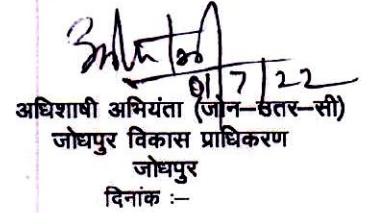 01/7/22
अधिशाषी अभियंता (जोन–उतर–सी)
जोधपुर विकास प्राधिकरण
जोधपुर
दिनांक :–